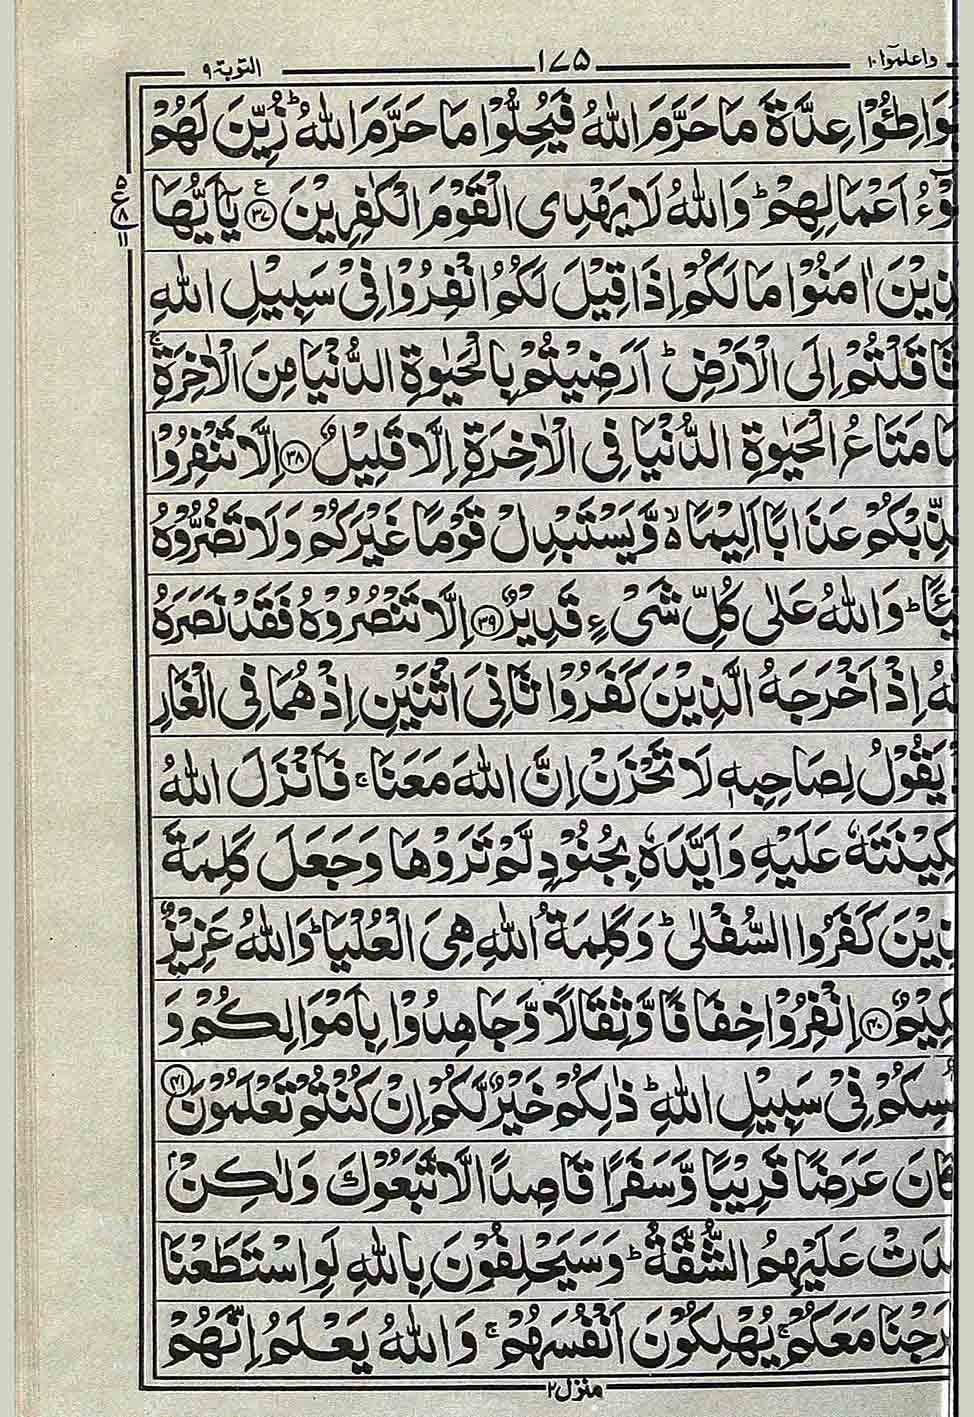 واعلموا ١٠ ١٧٥ التوبة ٩
عِدَّةَ مَا حَرَّمَ اللّٰهُ فَيُحِلُّوْا مَا حَرَّمَ اللّٰهُ ؕ زُيِّنَ لَهُمْ
اَعْمَالِهِمْ ؕ وَاللّٰهُ لَا يَهْدِى الْقَوْمَ الْكٰفِرِيْنَ ۝٣٧ ع يٰۤاَيُّهَا
ع ٨ ١١
اٰمَنُوْا مَا لَكُمْ اِذَا قِيْلَ لَكُمُ انْفِرُوْا فِىْ سَبِيْلِ اللّٰهِ
اِلَى الْاَرْضِ ؕ اَرَضِيْتُمْ بِالْحَيٰوةِ الدُّنْيَا مِنَ الْاٰخِرَةِ ۚ
مَتَاعُ الْحَيٰوةِ الدُّنْيَا فِى الْاٰخِرَةِ اِلَّا قَلِيْلٌ ۝٣٨ اِلَّا تَنْفِرُوْا
عَذَابًا اَلِيْمًا ۙ وَّيَسْتَبْدِلْ قَوْمًا غَيْرَكُمْ وَلَا تَضُرُّوْهُ
وَاللّٰهُ عَلٰى كُلِّ شَىْءٍ قَدِيْرٌ ۝٣٩ اِلَّا تَنْصُرُوْهُ فَقَدْ نَصَرَهُ
اِذْ اَخْرَجَهُ الَّذِيْنَ كَفَرُوْا ثَانِىَ اثْنَيْنِ اِذْ هُمَا فِى الْغَارِ
يَقُوْلُ لِصَاحِبِهٖ لَا تَحْزَنْ اِنَّ اللّٰهَ مَعَنَا ۚ فَاَنْزَلَ اللّٰهُ
عَلَيْهِ وَاَيَّدَهٗ بِجُنُوْدٍ لَّمْ تَرَوْهَا وَجَعَلَ كَلِمَةَ
كَفَرُوا السُّفْلٰى ؕ وَكَلِمَةُ اللّٰهِ هِىَ الْعُلْيَا ؕ وَاللّٰهُ عَزِيْزٌ
۝٤٠ اِنْفِرُوْا خِفَافًا وَّثِقَالًا وَّجَاهِدُوْا بِاَمْوَالِكُمْ وَ
فِىْ سَبِيْلِ اللّٰهِ ؕ ذٰلِكُمْ خَيْرٌ لَّكُمْ اِنْ كُنْتُمْ تَعْلَمُوْنَ ۝٤١
عَرَضًا قَرِيْبًا وَّسَفَرًا قَاصِدًا لَّاتَّبَعُوْكَ وَلٰكِنْۢ
عَلَيْهِمُ الشُّقَّةُ ؕ وَسَيَحْلِفُوْنَ بِاللّٰهِ لَوِ اسْتَطَعْنَا
مَعَكُمْ ۚ يُهْلِكُوْنَ اَنْفُسَهُمْ ۚ وَاللّٰهُ يَعْلَمُ اِنَّهُمْ
منزل ٢